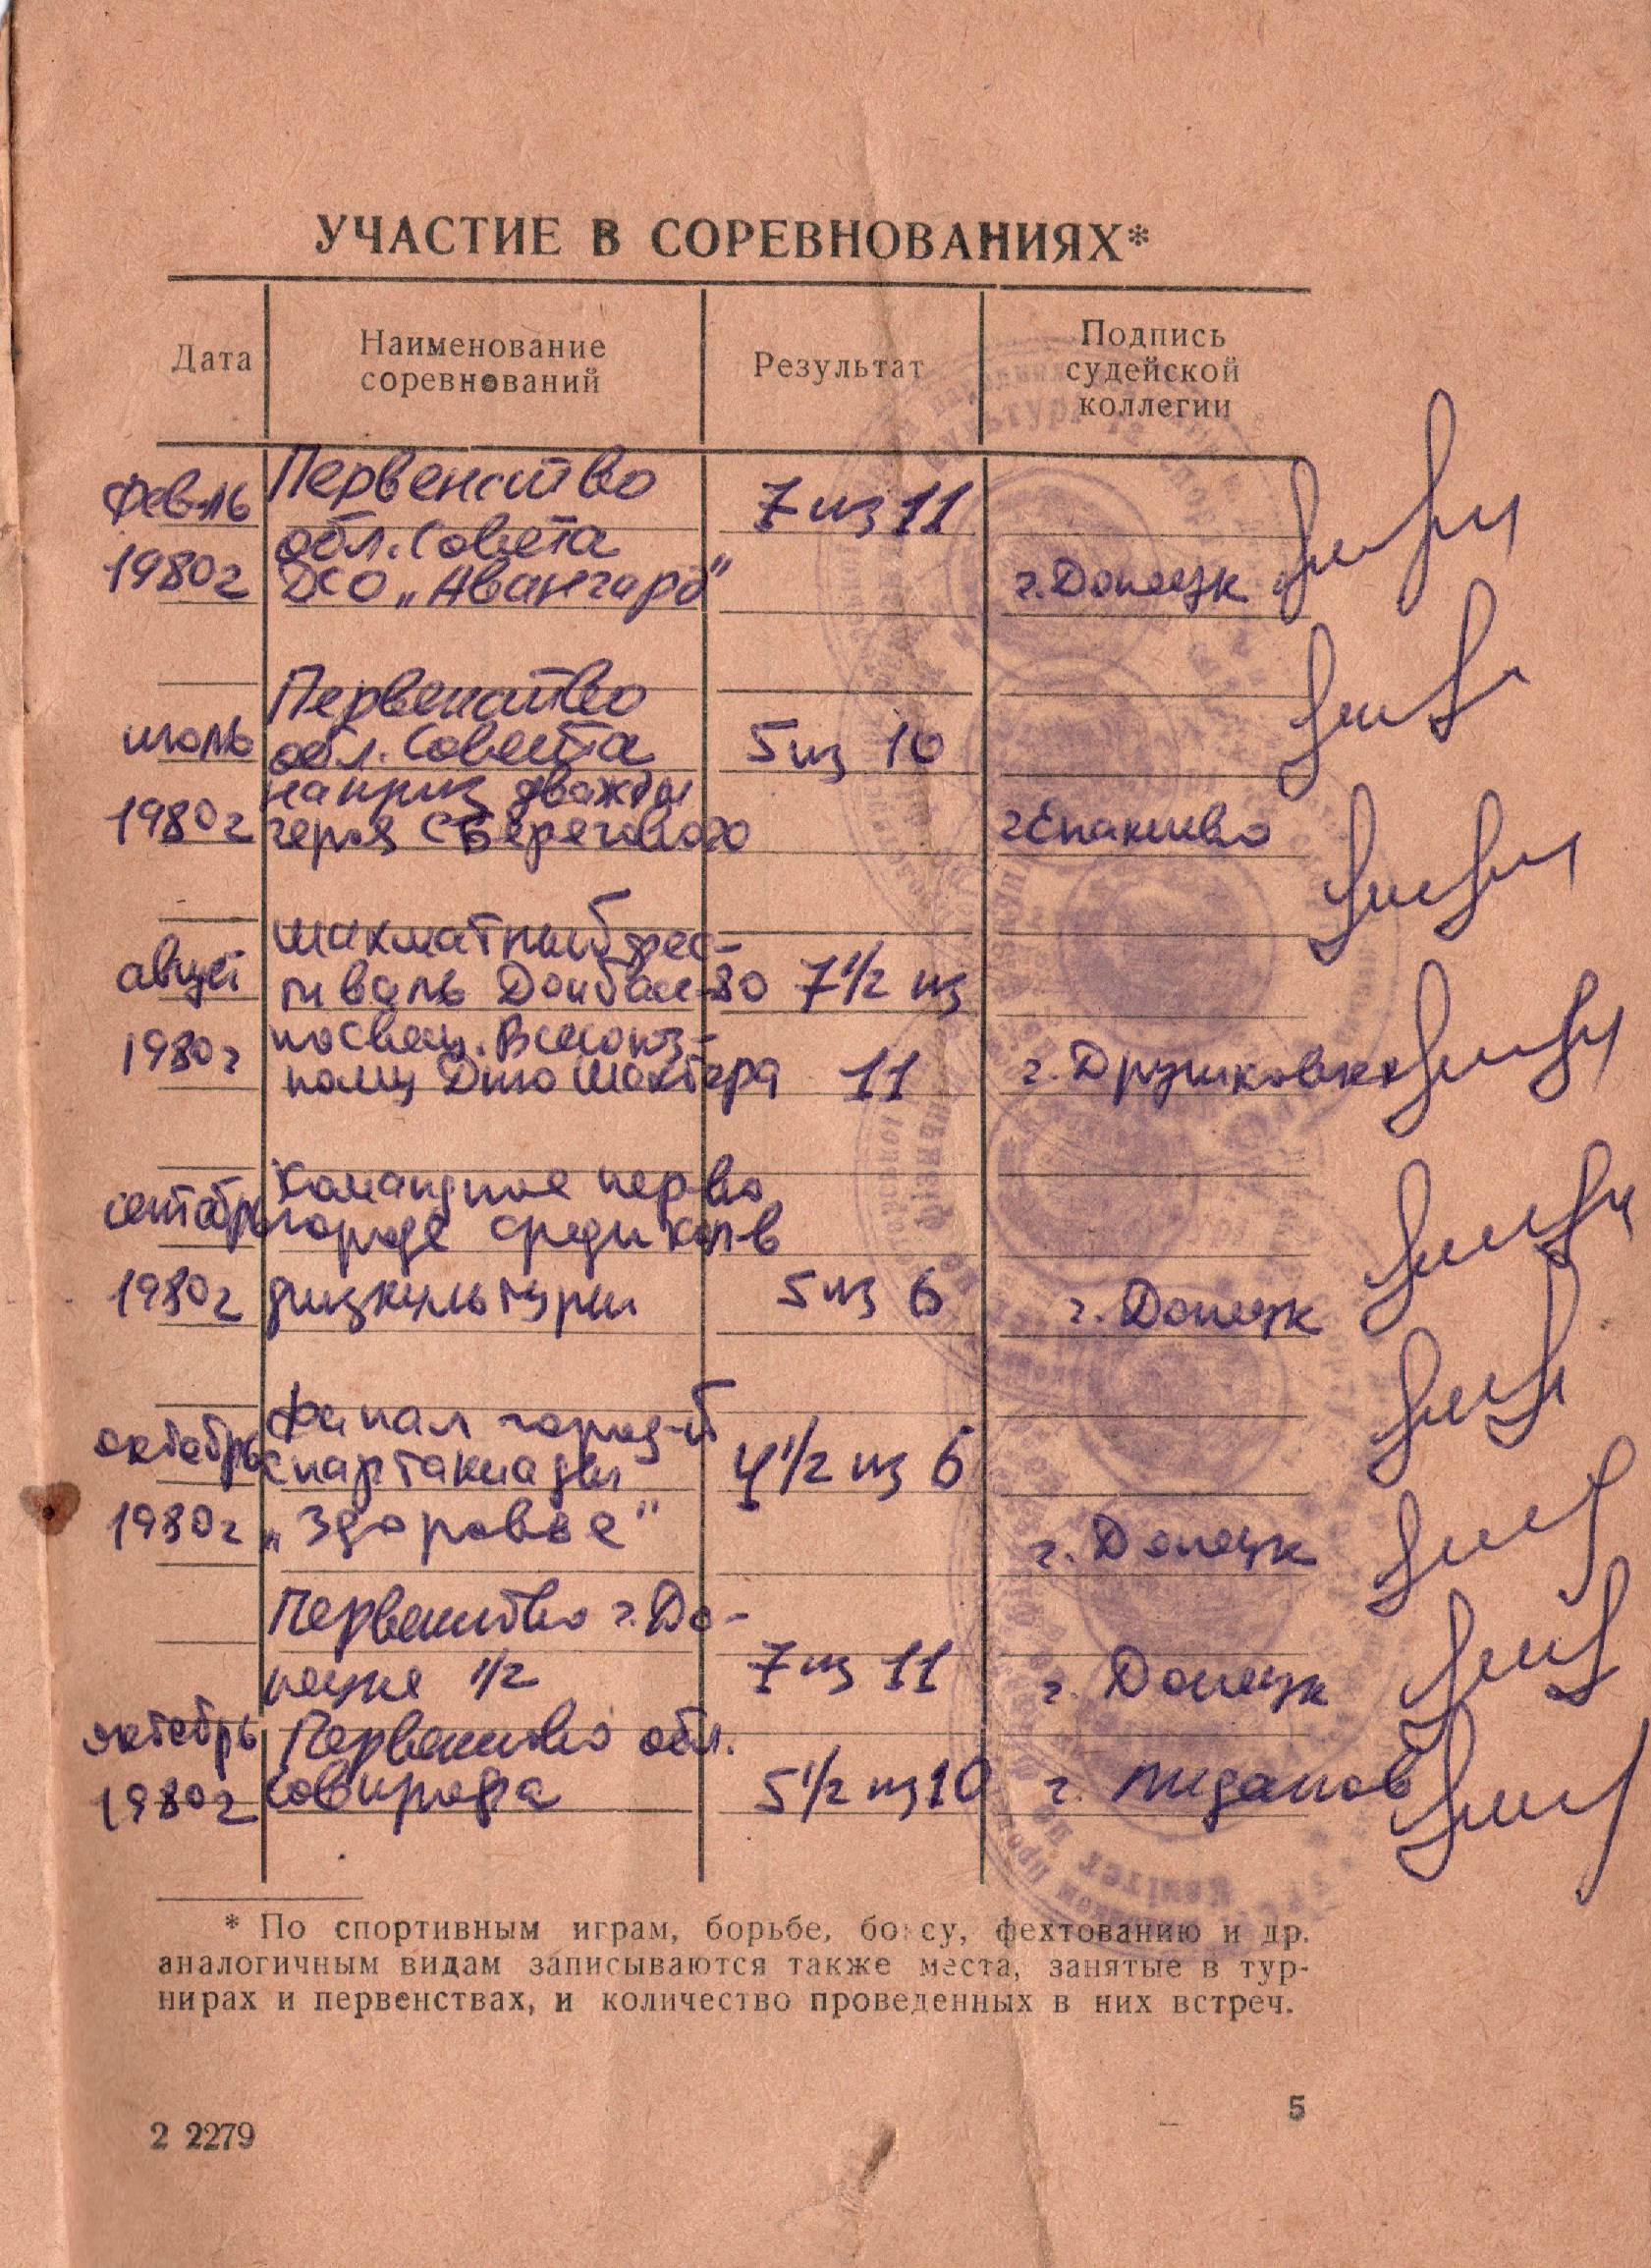 УЧАСТИЕ В СОРЕВНОВАНИЯХ*
Дата
Наименование
соревнований
Результат
Подпись
судейской
коллегии
Февль
1980г
Первенство
обл. Совета
ДСО „Авангард"
7 из 11
г. Донецк
июль
1980г
Первенство
обл. Совета
на приз дважды
героя СБерегового
5 из 10
г Енакиево
август
1980г
шахматный фес-
тиваль Донбасс-80
посвящ. Всесоюз-
ному Дню Шахтера
7 1/2 из
11
г. Дружковка
сентябрь
1980г
Командное перво
города среди кол-в
физкультуры
5 из 6
г. Донецк
октябрь
1980г
Финал город-й
спартакиады
„Здоровье"
4 1/2 из 6
г. Донецк
Первенство г. До-
нецка 1/2
7 из 11
г. Донецк
октябрь
1980г
Первенство обл.
совпрофа
5 1/2 из 10
г. Жданов
* По спортивным играм, борьбе, боксу, фехтованию и др.
аналогичным видам записываются также места, занятые в тур-
нирах и первенствах, и количество проведенных в них встреч.
2 2279
5